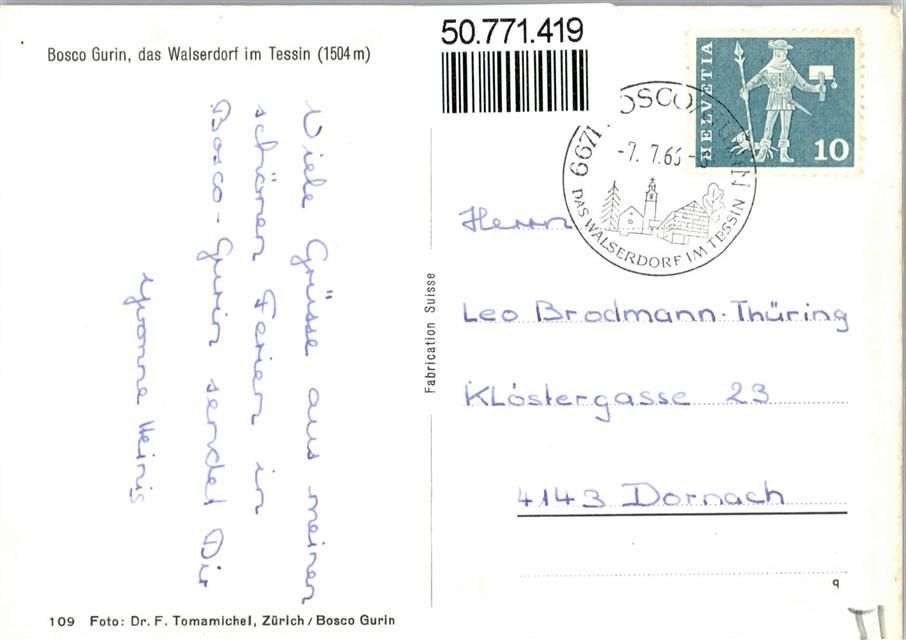 50.771.419
Bosco Gurin, das Walserdorf im Tessin (1504 m)
Viele Grüsse aus meinen
schönen Ferien in
Bosco-Gurin sendet Dir
Yvonne Heinis
109 Foto: Dr. F. Tomamichel, Zürich / Bosco Gurin
Fabrication Suisse
HELVETIA
10
6671 BOSCO/GURIN
-7. 7.66
DAS WALSERDORF IM TESSIN
Herrn
Leo Brodmann-Thüring
Klostergasse 23
4143 Dornach
q